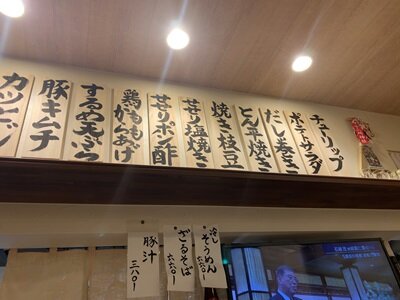 チューリップ
ポテサラダ
だし巻き
とん平焼き
焼き枝豆
せせり塩焼き
せせりポン酢
鶏ももからあげ
するめ天ぷら
豚キムチ
冷しそうめん
ざるそば
六六〇
豚汁
三八〇